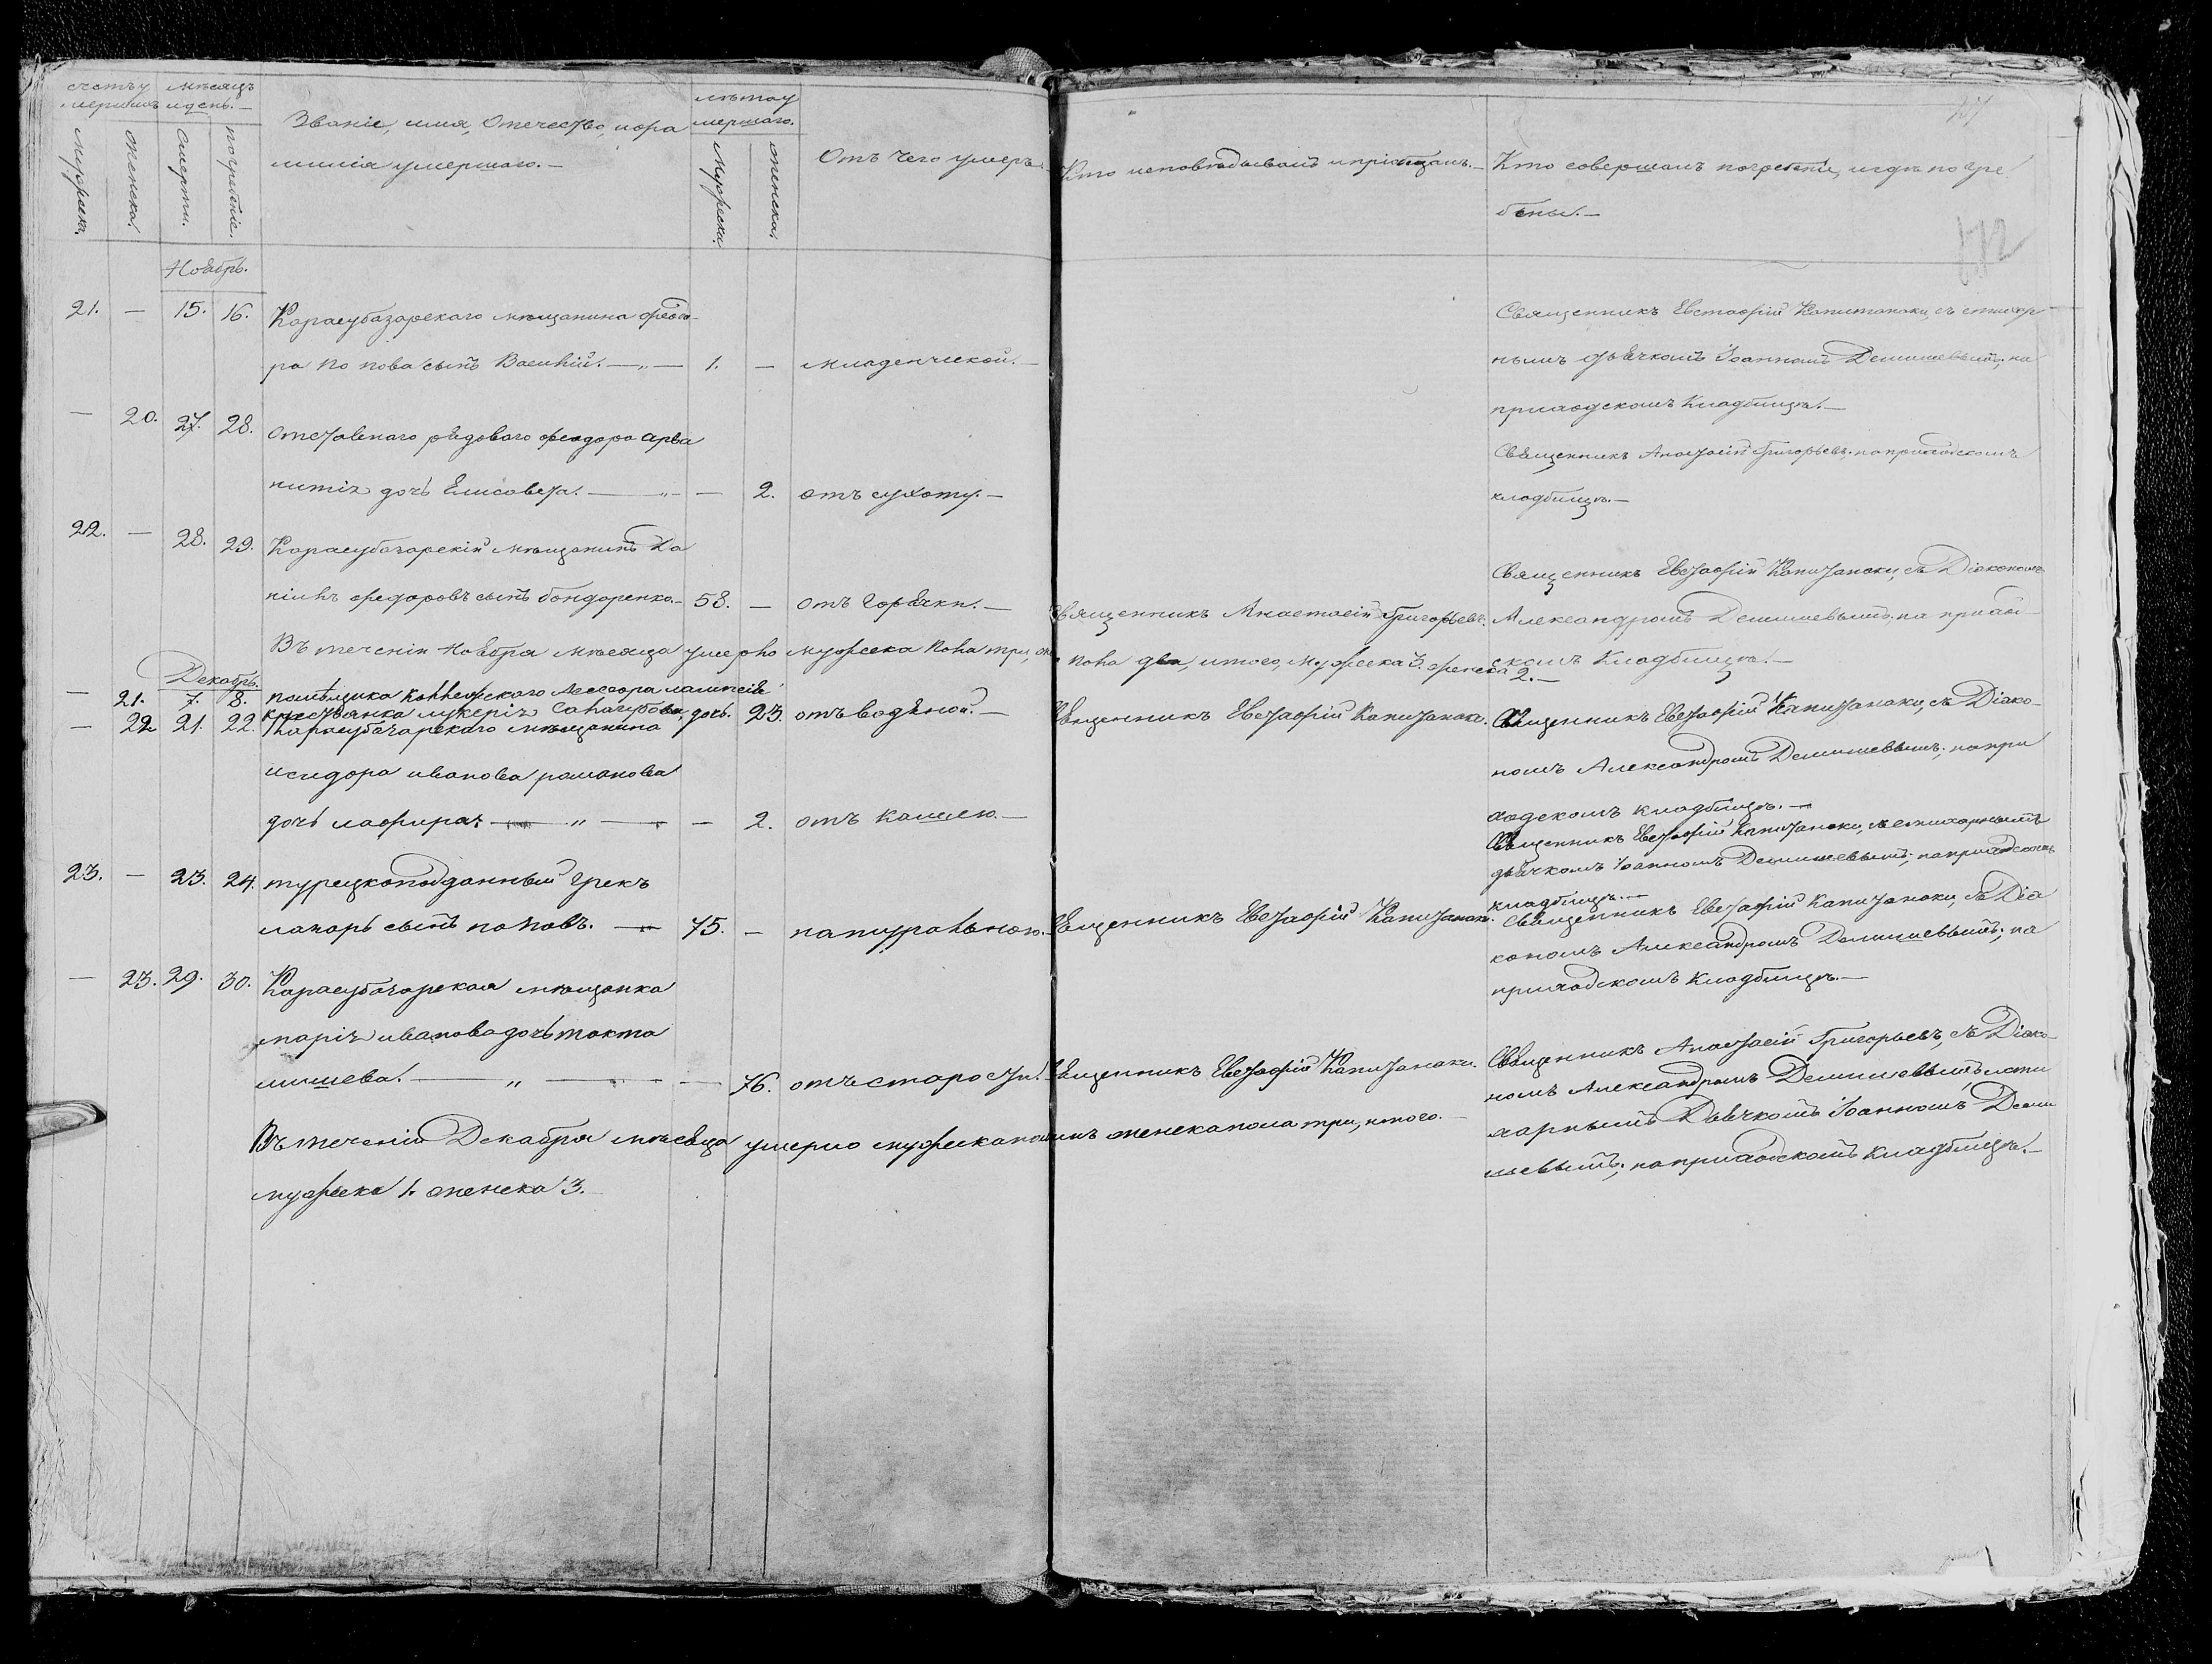 счетъ у
мершихъ
мѣсяцъ
и день.—
Званіе, имя, Отечество, и фа
милія умершаго.—
лѣта у
мершаго.
мужеска.
женска.
смерти.
погребеніе.
Мужески.
женска.
Отъ Чего умеръ.
Кто исповѣдывалъ и пріобщалъ.—
Кто совершалъ погребеніе, и гдѣ погре
бены.—
172
Ноябрь.
21. — 15. 16. Карасубазарскаго мѣщанина Федо
ра Попова сынъ Василій. — „ — 1. — младенческой.—
Священникъ Евстафій Капитанаки, съ стихар
нымъ дьячкомъ Іоанномъ Демишевымъ; на
приходскомъ Кладбищѣ.—
— 20. 27. 28. отставнаго рядоваго Феодора Арва
нитія дочь Елисавета. — „ — — 2. отъ сухоту.—
Священникъ Анастасій Григорьевъ; на приходскомъ
кладбищѣ.—
22. — 28. 29. Карасубазарскій мѣщанинъ Да
ніилъ Федоровъ сынъ бондаренко.— 58. — отъ Горячки.—
Священникъ Анастасій Григорьевъ.
Священникъ Евстафій Капитанаки, съ Діакономъ
Александромъ Демишевымъ; на приход
скомъ Кладбищѣ.—
Въ теченіи Ноября мѣсяца умерло мужеска пола три, же
пола два, итого, мужеска 3. женска 2.—
Декабрь.
— 21. 7. 8. помѣщика Коллежскаго Ассесора
крестьянка лукерія дочь. 23. отъ водяной.—
Священникъ Евстафій Капитанаки.
Священникъ Евстафій Капитанаки, съ Діако
номъ Александромъ Демишевымъ; на при
ходскомъ кладбищѣ.—
— 22 21. 22. Карасубазарскаго мѣщанина
исидора иванова романова
дочь — „ — — 2. отъ кашлю.—
Священникъ Евстафій Капитанаки, съ стихарнымъ
дьячкомъ Іоанномъ Демишевымъ; на приходскомъ
кладбищѣ.—
23. — 23. 24. турецкоподданный Грекъ
лазарь сынъ поповъ. — 75. — натуральною.
Священникъ Евстафій Капитанаки.
Священникъ Евстафій Капитанаки, съ Діа
кономъ Александромъ Демишевымъ; на
приходскомъ Кладбищѣ.—
— 23. 29. 30. Карасубазарская мѣщанка
марія иванова дочь токта
мишева. — „ — — 76. отъ старости.
Священникъ Евстафій Капитанаки.
Священникъ Анастасій Григорьевъ, съ Діако
номъ Александромъ Демишевымъ и сти
харнымъ Дьячкомъ Іоанномъ Деми
шевымъ; на приходскомъ Кладбищѣ.—
Въ теченіи Декабря мѣсяца умерло мужеска
женска пола три, итого.—
мужеска 1. женска 3.